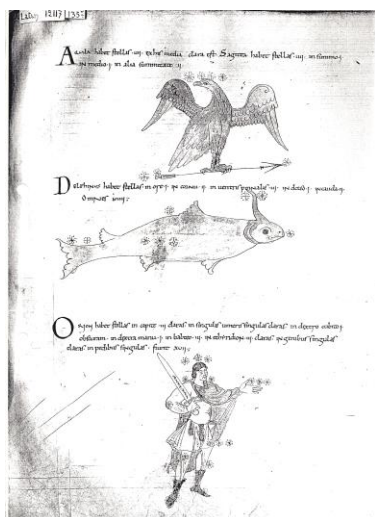 Latin 12117 135
Aquila habet stellas · iiii · ex his media clara est · Sagitta habet stellas · iiii · in summo i
in medio i in alia summitate ii
Delphinus habet stellas in ore i in cornu ii in ventre iii in dorso i in cauda ii
Omnes
Orion habet stellas in capite iii claras in singulis umeris singulas claras in dextro cubito i
obscuram · in dextra manu i in balteo iii in claras in genibus singulas
claras in pedibus singulas · sunt xvii ·